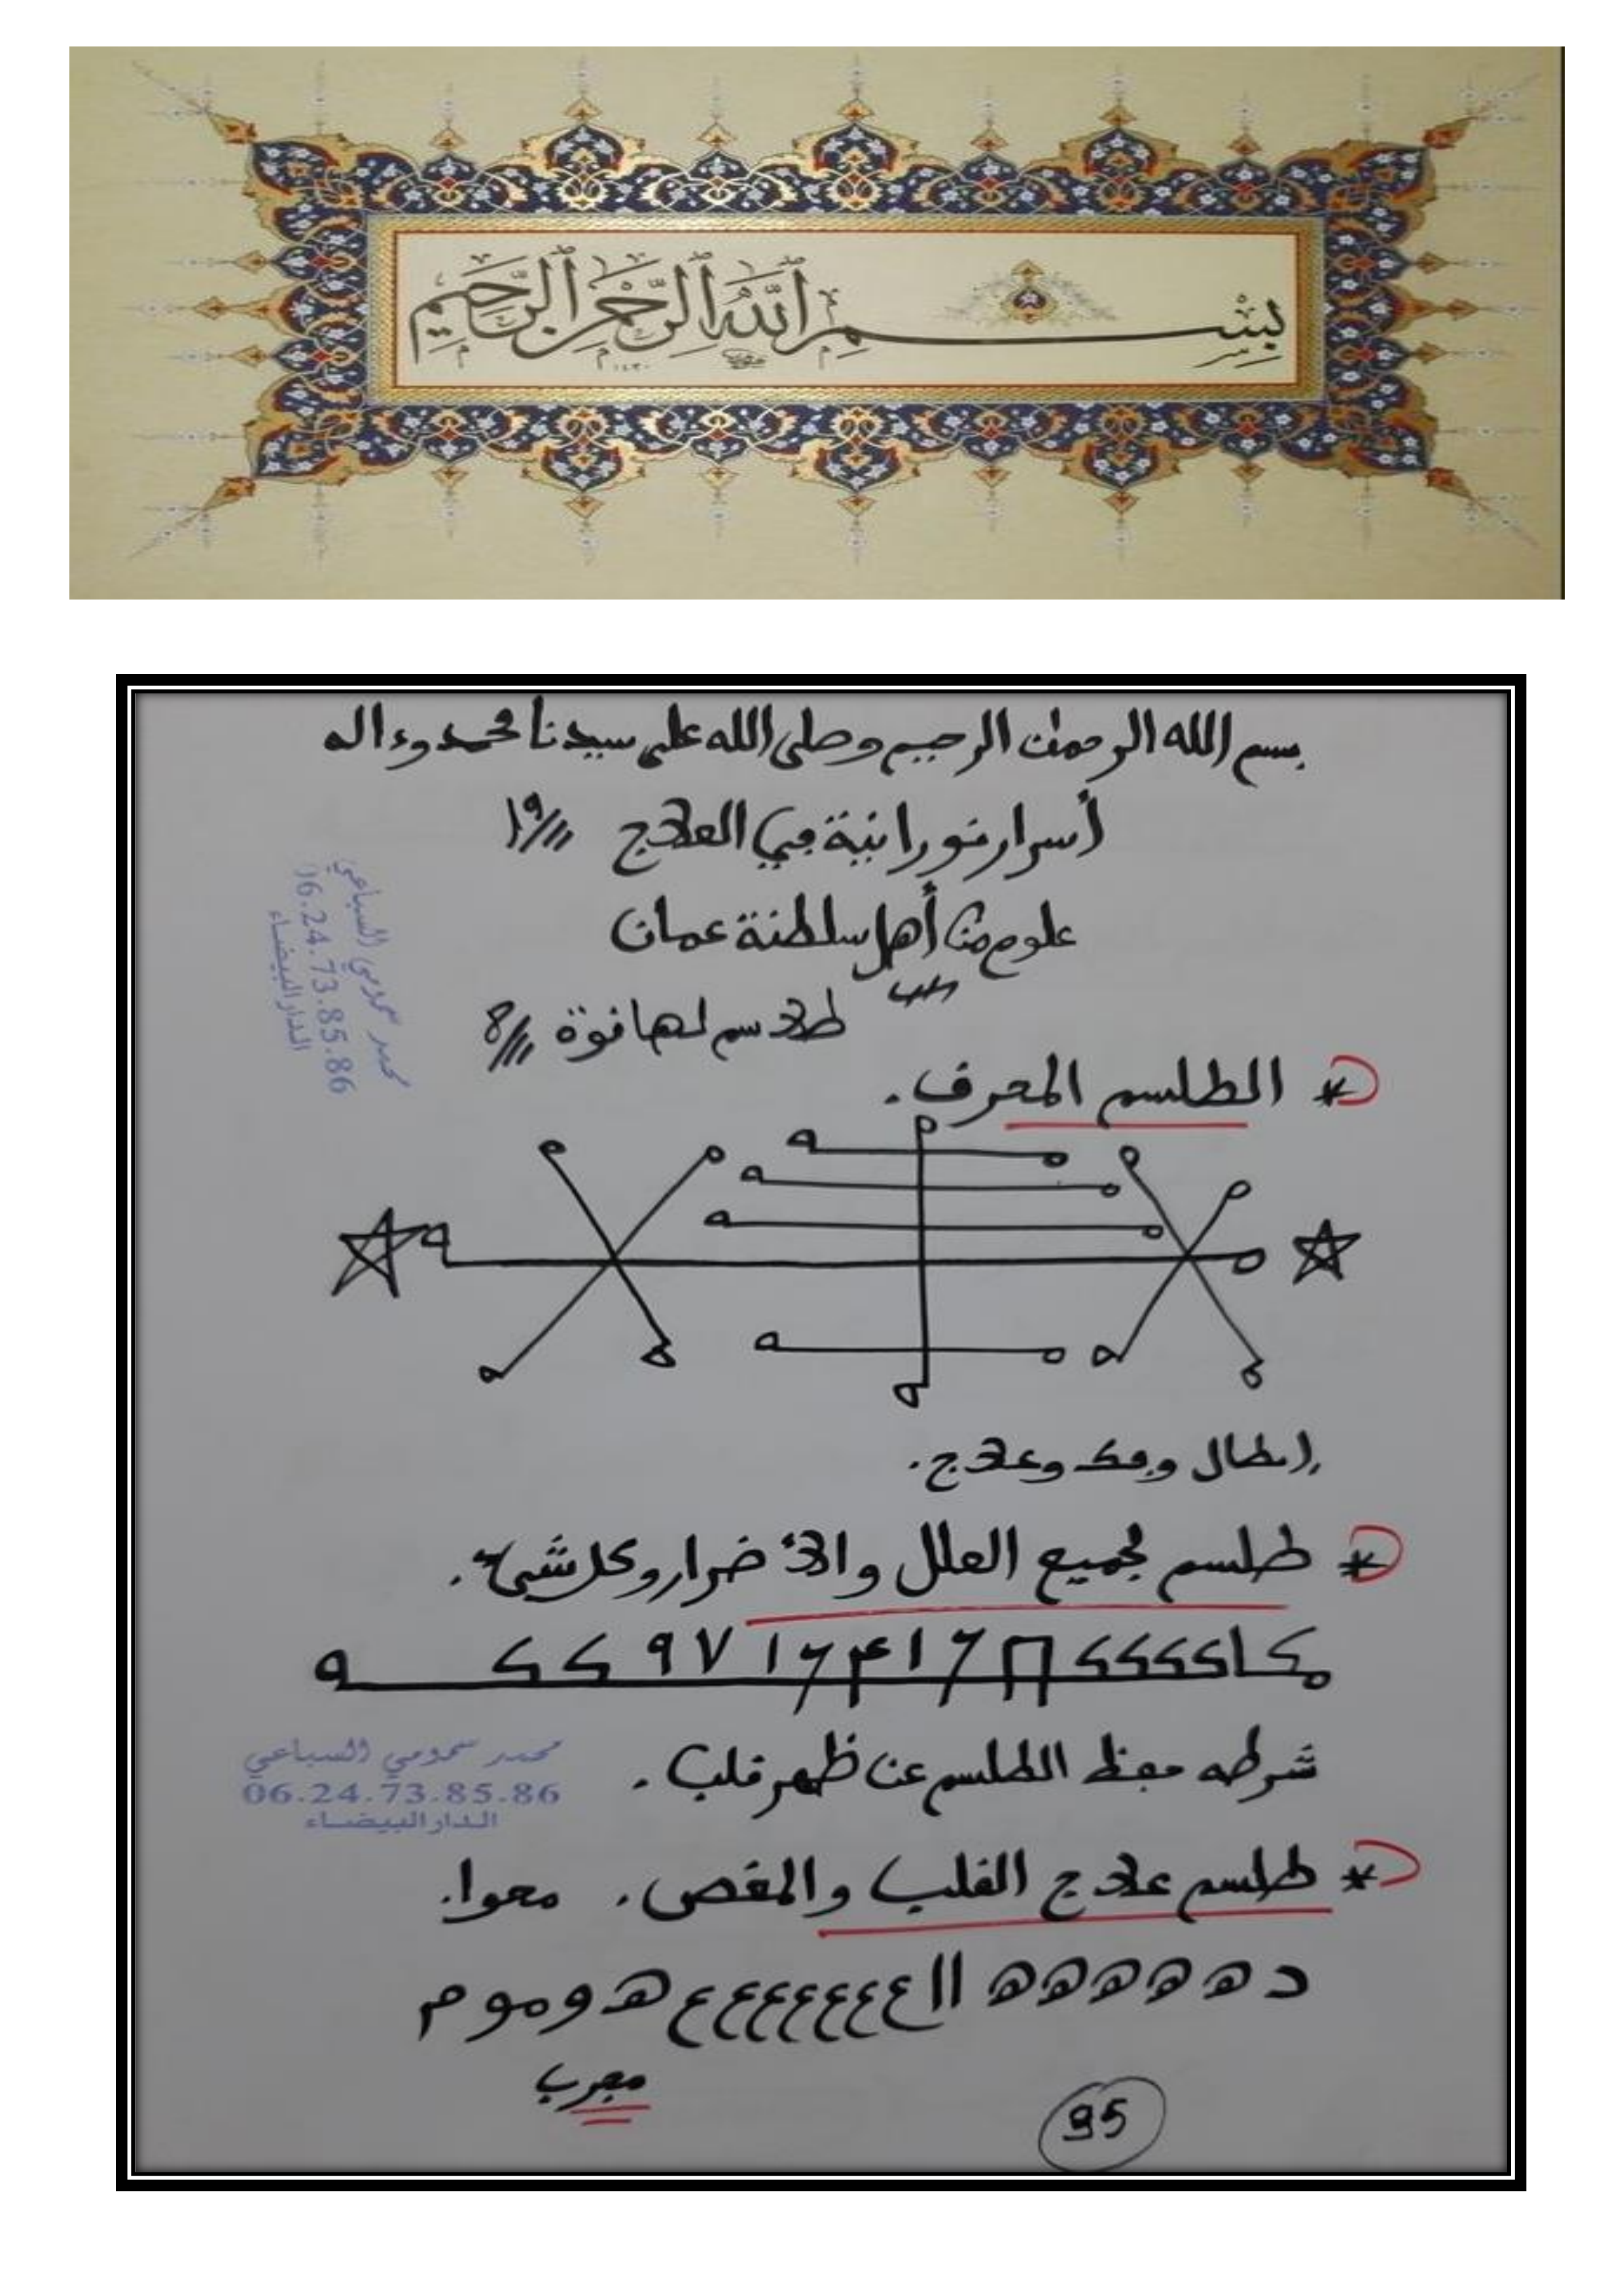 بسم الله الرحمن الرحيم
١٤٣٠
بسم الله الرحمان الرحيم وصلى الله على سيدنا محمد وءاله
أسرار نورانية في العلاج ///١٩
علوم من أهل سلطنة عمان
طلاسم لها قوة ///8
محمد سمومي السباعي
06.24.73.85.86
الدار البيضاء
* الطلسم المحرف.
إبطال وفك وعلاج.
* طلسم لجميع العلل والأضرار وكل شيء.
شرطه حفظ الطلسم عن ظهر قلب.
محمد سمومي السباعي
06.24.73.85.86
الدار البيضاء
* طلسم علاج القلب والمغص. محوا.
د ه ه ه ه ه ه اا ع ع ع ع ع ع ع هـ و م و م
مجرب
95